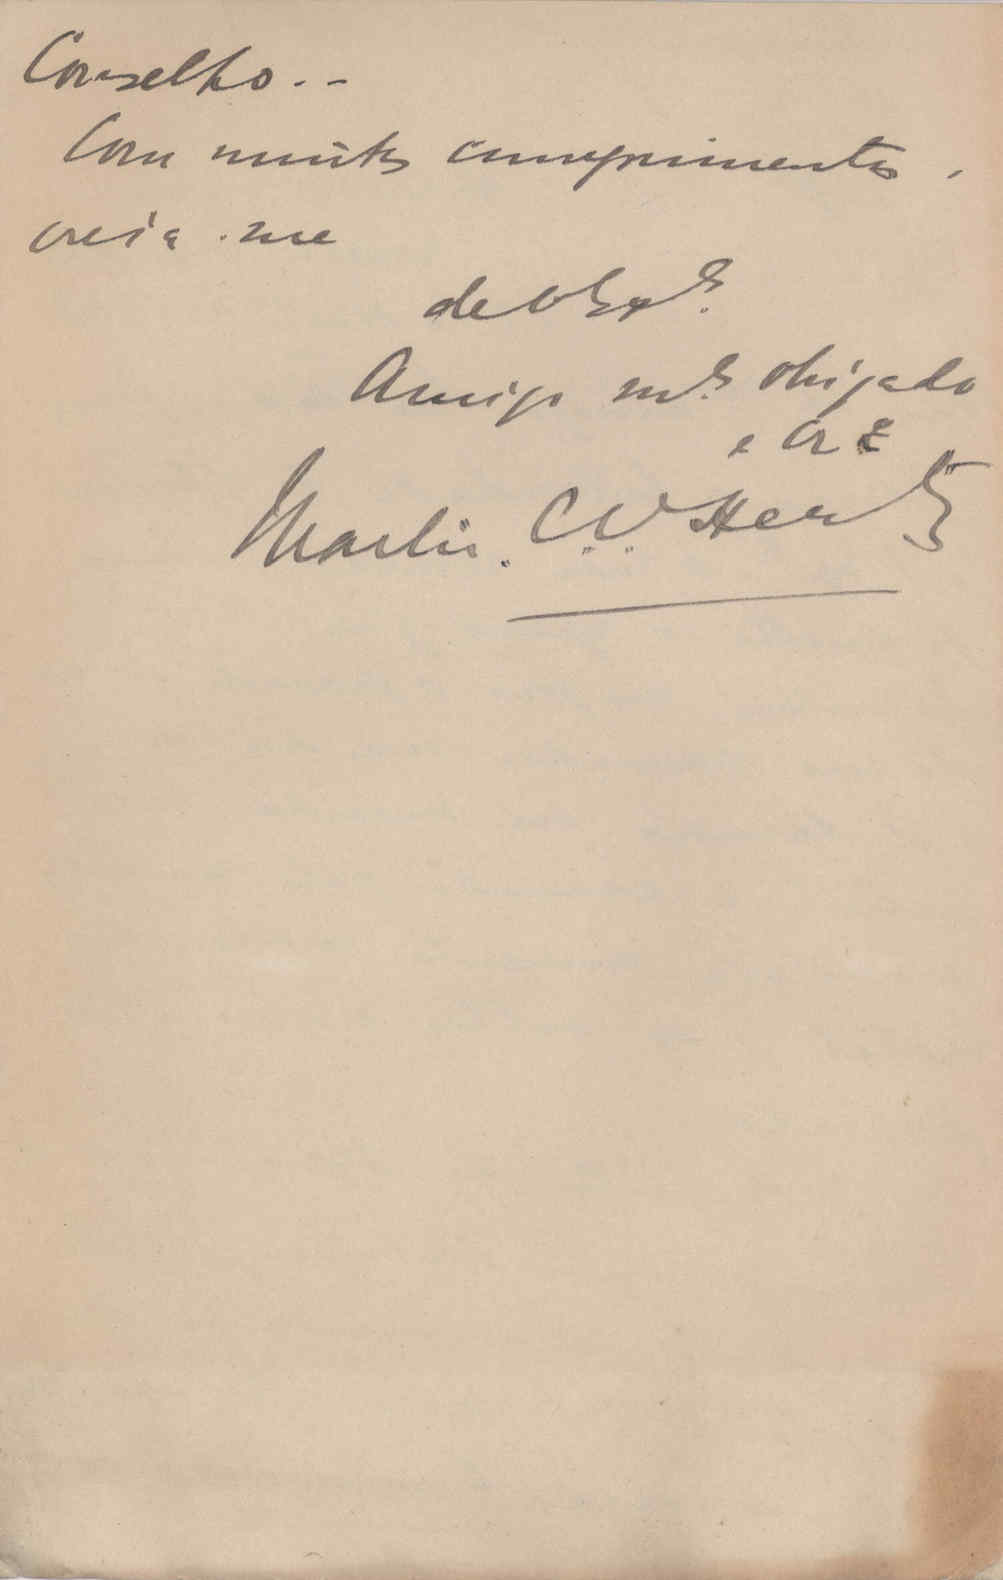 Conselho. --
Com muitos cumprimentos,
creia-me
de V. Exª.
Amigo mº. obrigado
e Cr.
Martin. C. W. Hertz